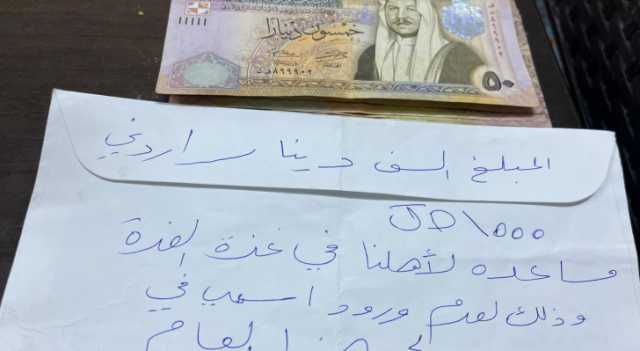 خمسون دينارا
٥٠
المبلغ الف دينار اردني
JD ١٠٠٠
مساعده لأهلنا في غزة العزة
وذلك لعدم ورود اسمي في
العام